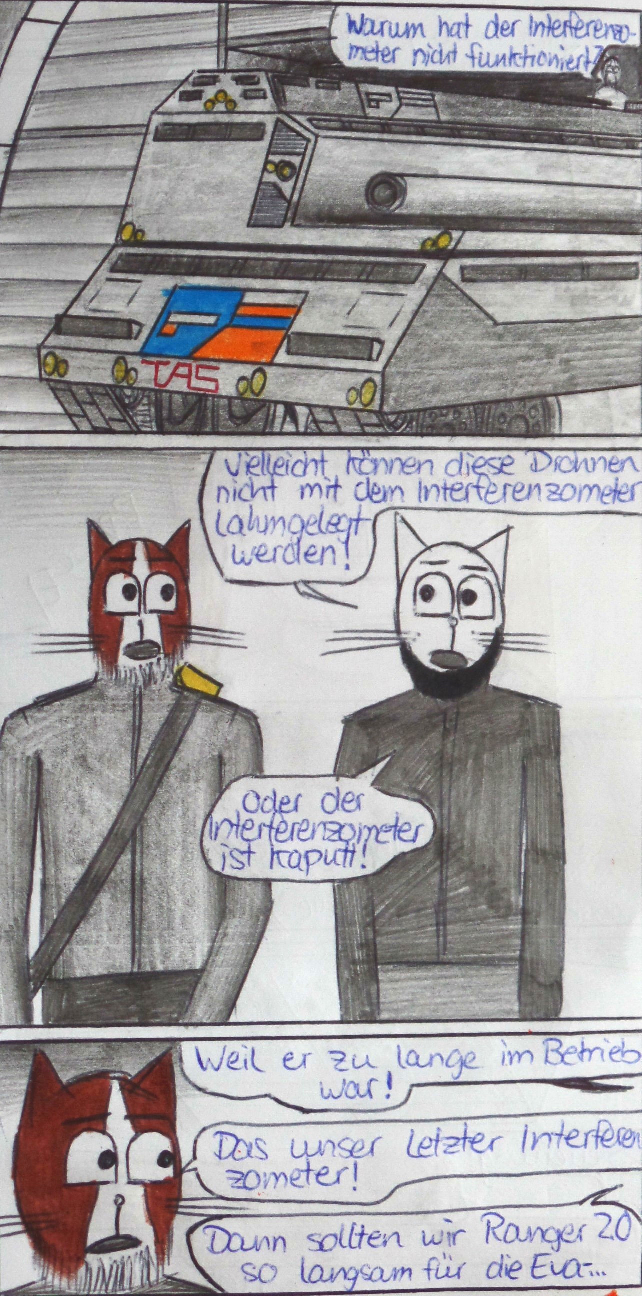 Warum hat der Interferenzo-
meter nicht funktioniert?
TAS
Vielleicht können diese Drohnen
nicht mit dem Interferenzometer
Lahmgelegt
werden!
Oder der
Interferenzometer
ist kaputt!
Weil er zu lange im Betrieb
war!
Das unser Letzter Interferen
zometer!
Dann sollten wir Ranger 20
so langsam für die Eva-...